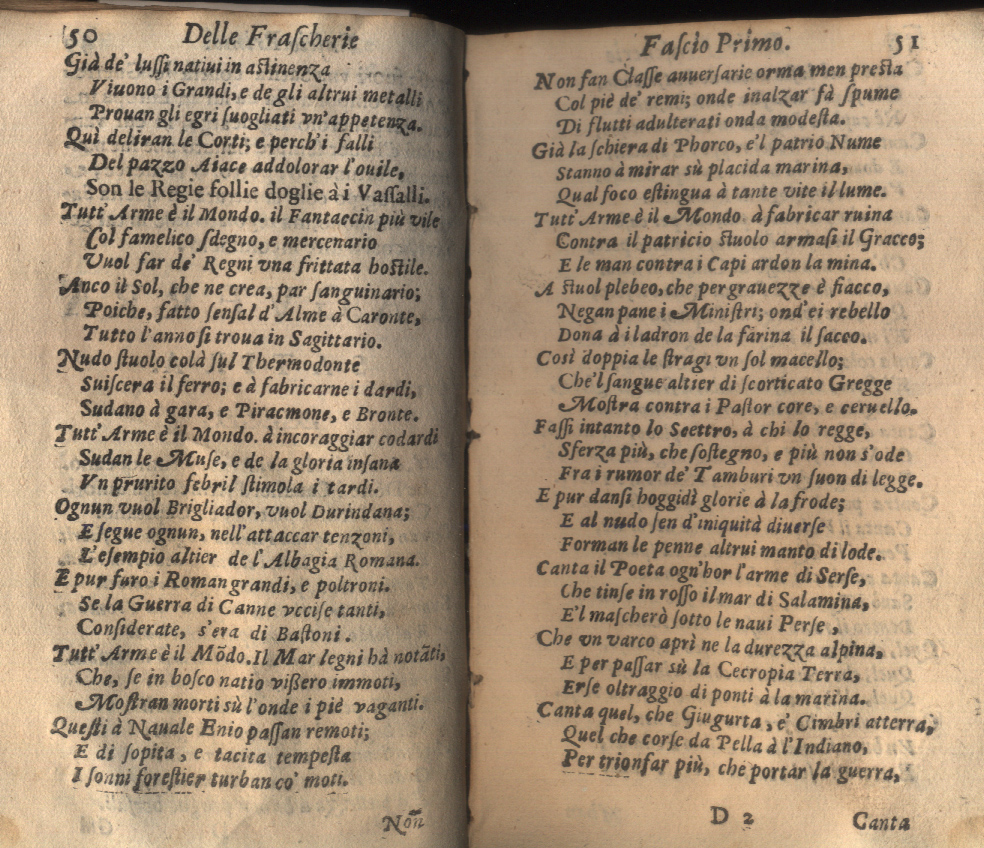 50 Delle Fraſcherie
Già de' luſſi natiui in aſtinenza
Viuono i Grandi, e de gli altrui metalli
Prouan gli egri ſuogliati vn'appetenza.
Quì deliran le Corti; e perch'i falli
Del pazzo Aiace addolorar l'ouile,
Son le Regie follie doglie à i Vaſſalli.
Tutt'Arme è il Mondo. il Fantaccin più vile
Col famelico ſdegno, e mercenario
Vuol far de' Regni vna frittata hoſtile.
Anco il Sol, che ne crea, par ſanguinario;
Poiche, fatto ſenſal d'Alme à Caronte,
Tutto l'anno ſi troua in Sagittario.
Nudo ſtuolo colà ſul Thermodonte
Suiſcera il ferro; e à fabricarne i dardi,
Sudano à gara, e Piracmone, e Bronte.
Tutt'Arme è il Mondo. à incoraggiar codardi
Sudan le Muſe, e de la gloria inſana
Vn prurito febril ſtimola i tardi.
Ognun vuol Brigliador, vuol Durindana;
E ſegue ognun, nell'attaccar tenzoni,
L'eſempio altier de l'Albagia Romana.
E pur furo i Roman grandi, e poltroni.
Se la Guerra di Canne vcciſe tanti,
Conſiderate, s'era di Baſtoni.
Tutt'Arme è il Mõdo. Il Mar legni hà notãti,
Che, ſe in boſco natio viſſero immoti,
Moſtran morti sù l'onde i piè vaganti.
Queſti à Nauale Enio paſſan remoti;
E di ſopita, e tacita tempeſta
I ſonni foreſtier turban co' moti.
Non
Faſcio Primo. 51
Non fan Claſſe auuerſarie orma men preſta
Col piè de' remi; onde inalzar fà ſpume
Di flutti adulterati onda modeſta.
Già la ſchiera di Phorco, e'l patrio Nume
Stanno à mirar sù placida marina,
Qual foco eſtingua à tante vite il lume.
Tutt'Arme è il Mondo. à fabricar ruina
Contra il patricio ſtuolo armaſi il Gracco;
E le man contra i Capi ardon la mina.
A ſtuol plebeo, che per grauezze è fiacco,
Negan pane i Miniſtri; ond'ei rebello
Dona à i ladron de la farina il ſacco.
Così doppia le ſtragi vn ſol macello;
Che'l ſangue altier di ſcorticato Gregge
Moſtra contra i Paſtor core, e ceruello.
Faſſi intanto lo Scettro, à chi lo regge,
Sferza più, che ſoſtegno, e più non s'ode
Fra i rumor de' Tamburi vn ſuon di legge.
E pur danſi hoggidì glorie à la frode;
E al nudo ſen d'iniquità diuerſe
Forman le penne altrui manto di lode.
Canta il Poeta ogn'hor l'arme di Serſe,
Che tinſe in roſſo il mar di Salamina,
E'l maſcherò ſotto le naui Perſe,
Che vn varco aprì ne la durezza alpina,
E per paſſar sù la Cecropia Terra,
Erſe oltraggio di ponti à la marina.
Canta quel, che Giugurta, e' Cimbri atterra,
Quel che corſe da Pella à l'Indiano,
Per trionfar più, che portar la guerra,
D 2 Canta